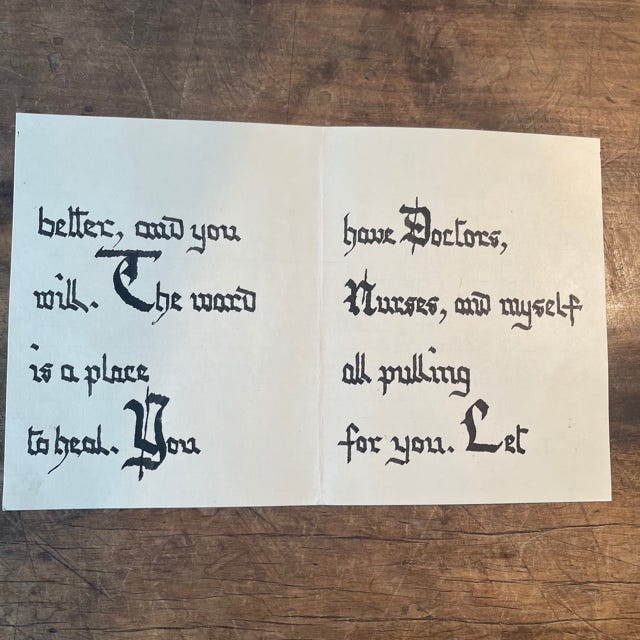 better, and you
will. The ward
is a place
to heal. You
have Doctors,
Nurses, and myself
all pulling
for you. Let